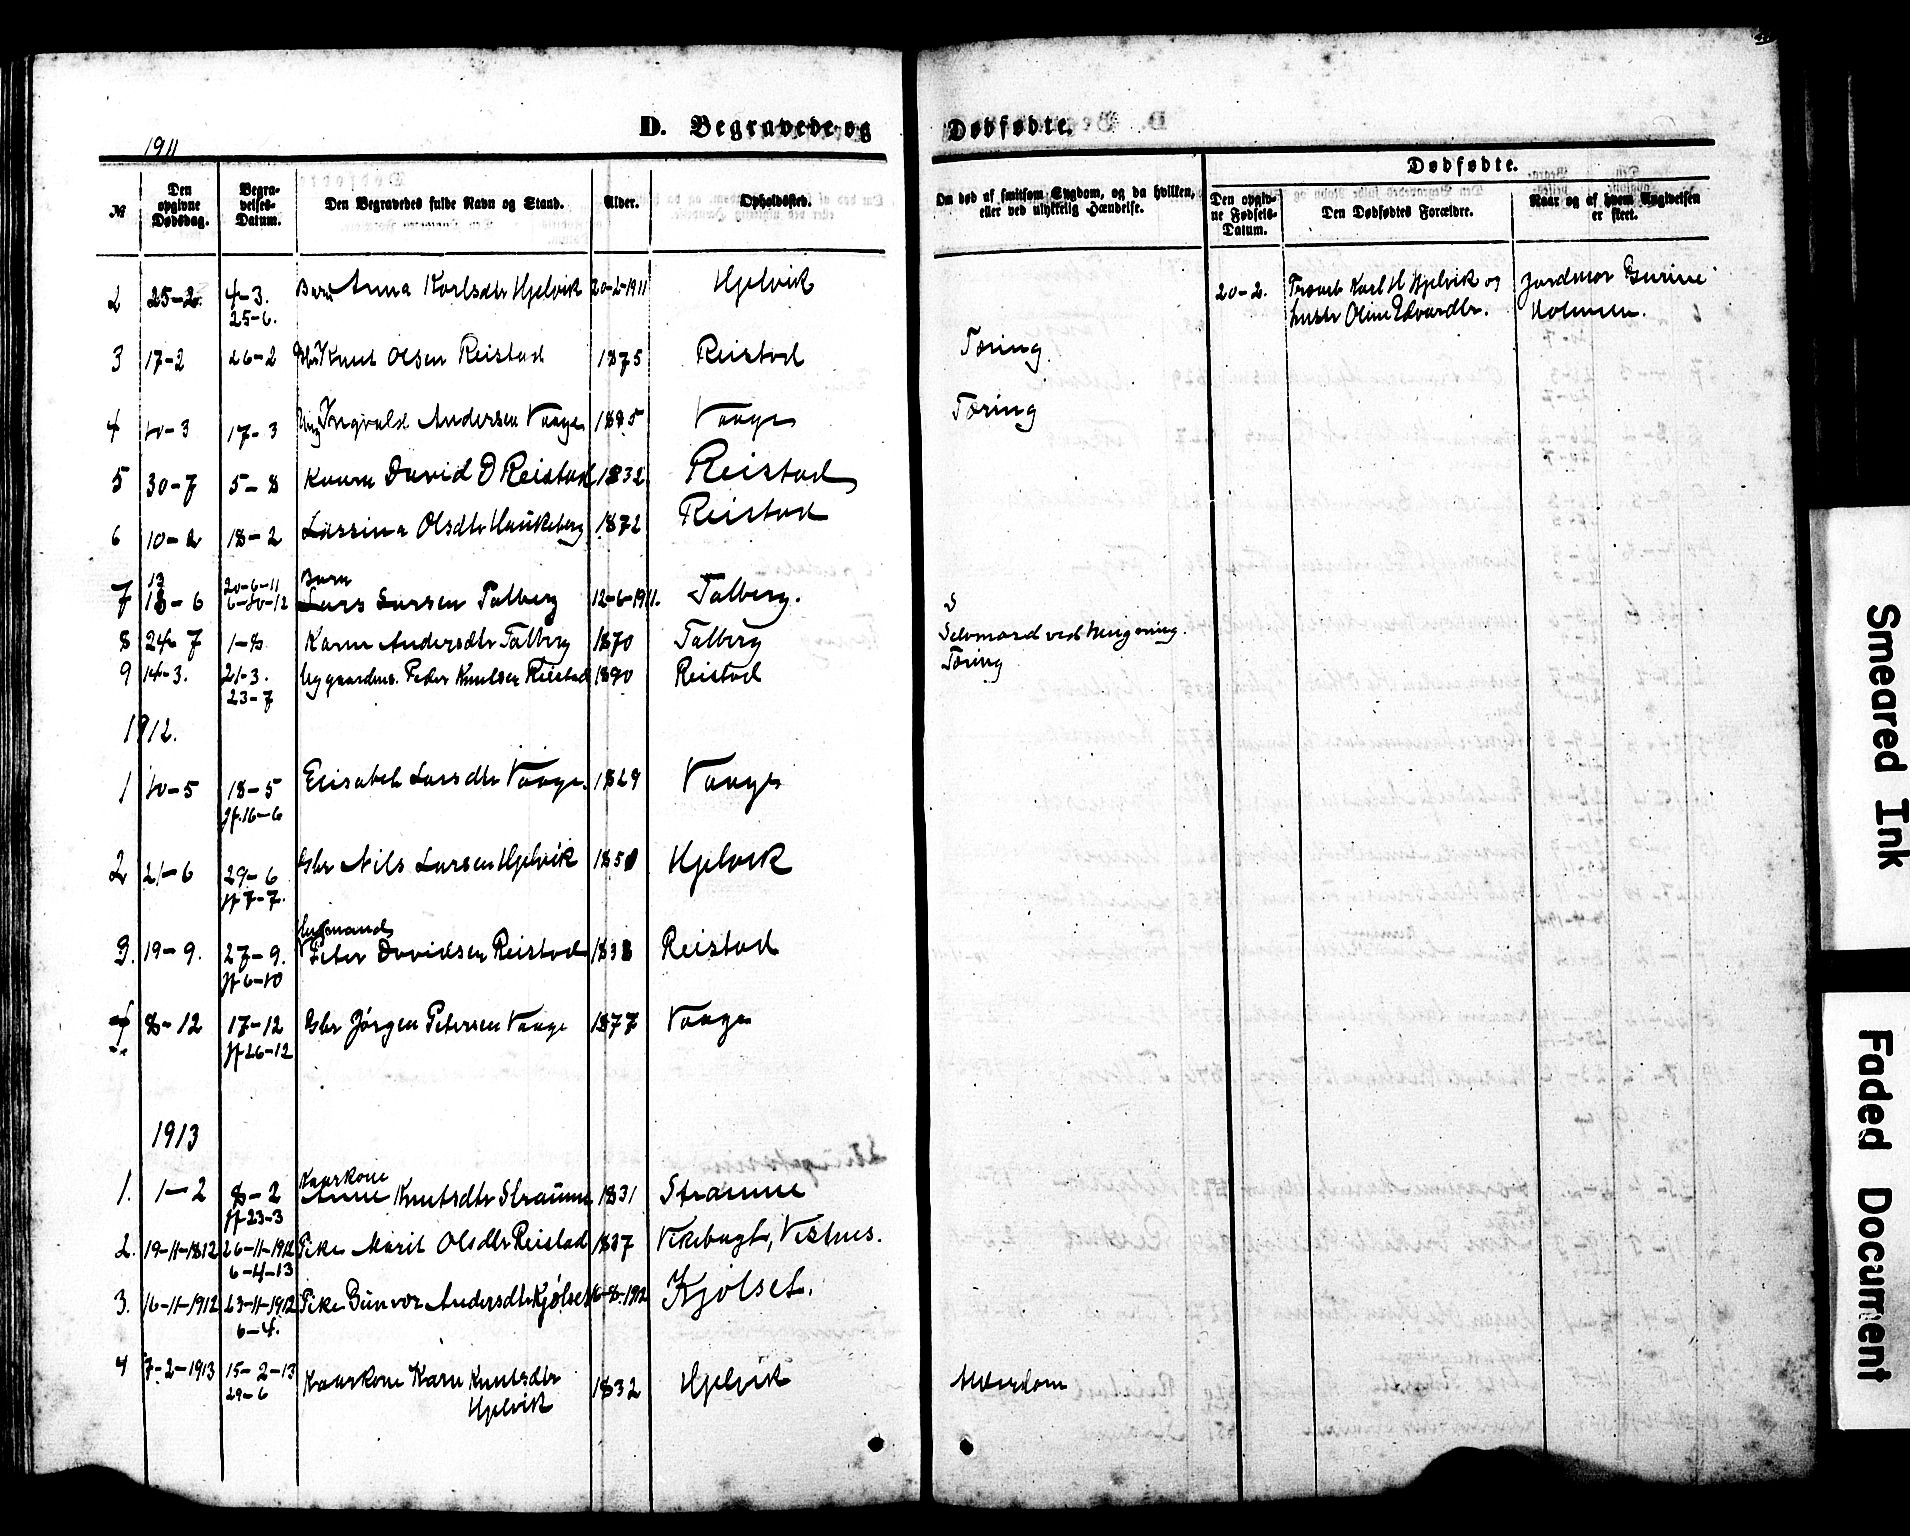 D. Begravede og Dødfødte.
1911
№ | Den opgivne Dødsdag. | Begravelses-Datum. | Den Begravedes fulde Navn og Stand. | Alder. | Opholdssted. | Om død af smitsom Sygdom, og da hvilken, eller ved ulykkelig Hændelse. | Dødfødte. | Den opgivne Fødsels-Datum. | Den Dødfødtes Forældre. | Naar og af hvem Angivelsen er skeet.
2 | 25-2. | 4-3. 25-6. | Barn Anna Karlsdtr Hjelvik | 20-2-1911 | Hjelvik | 20-2. | Karl H Hjelvik og hustr Oline Edvardtr. | Jordmor Gurine
3 | 17-2 | 26-2 | Knut Olsen Reistad | 1875 | Reistad | Tæring
4 | 10-3 | 17-3 | Ung Ingvald Andersen Vaage | 1885 | Vaage | Tæring
5 | 30-7 | 5-8 | David D Reistad | 1832. | Reistad
6 | 10-2 | 18-2 | Lassina Olsdtr Haukeberg | 1872 | Reistad
7 | 13 18-6 | 20-6-11 6-10-12 | Barn Lars Larsen Talberg | 12-6-1911. | Talberg.
8 | 24-7 | 1-8 | Karen Andersdtr Talberg | 1870 | Talberg | Selvmord ved hengning.
9 | 14-3. | 21-3. 23-7 | Peder Knutsen Reistad | 1890 | Reistad | Tæring
1912.
1 | 10-5 | 18-5 jf.16-6 | Elisabeh Larsdtr Vaage. | 1829 | Vaage
2 | 21-6 | 29-6 jf 7-7. | Gbr Nils Larsen Hjelvik | 1850 | Hjelvik
3. | 19-9. | 27-9. jf 6-10 | Husmand Peter Davidsen Reistad | 1838 | Reistad
4 | 8-12 | 17-12 jf 26-12 | Gbr Jørgen Petersen Vaage | 1877 | Vaage
1913
1. | 1-2 | 8-2 jf 23-3 | Kaarkone Anne Knutsdtr Straume | 1831 | Straume
2. | 19-11-1812 | 26-11-1912 6-4-13 | Pike Marit Olsdtr Reistad | 1837 | Vikebugt, Vestnes.
3. | 16-11-1912 | 23-11-1912 6-4. | Pike Gunvor Andersdtr Kjølset | 6-8-1912 | Kjølset.
4 | 7-2-1913 | 15-2-13 29-6 | Kaarkone Karen Knutsdtr Hjelvik | 1832 | Hjelvik | Alderdom
Smeared Ink
Faded Document